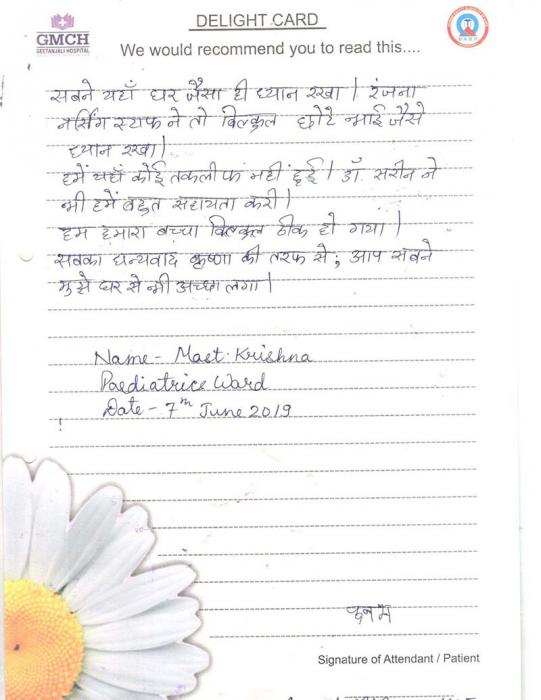 DELIGHT CARD
GMCH
GEETANJALI HOSPITAL
We would recommend you to read this....
सबने यहाँ घर जैसा ही ध्यान रखा। रंजना
नर्सिंग स्टाफ ने तो बिल्कुल छोटे भाई जैसे
ध्यान रखा।
हमें यहाँ कोई तकलीफ नहीं हुई। डॉ. सरीन ने
भी हमें बहुत सहायता करी।
हम हमारा बच्चा बिल्कुल ठीक हो गया।
सबका धन्यवाद कृष्णा की तरफ से; आप सबने
मुझे घर से भी अच्छा लगा।
Name - Mast. Krishna
Paediatrice Ward
Date - 7th June 2019
Signature of Attendant / Patient